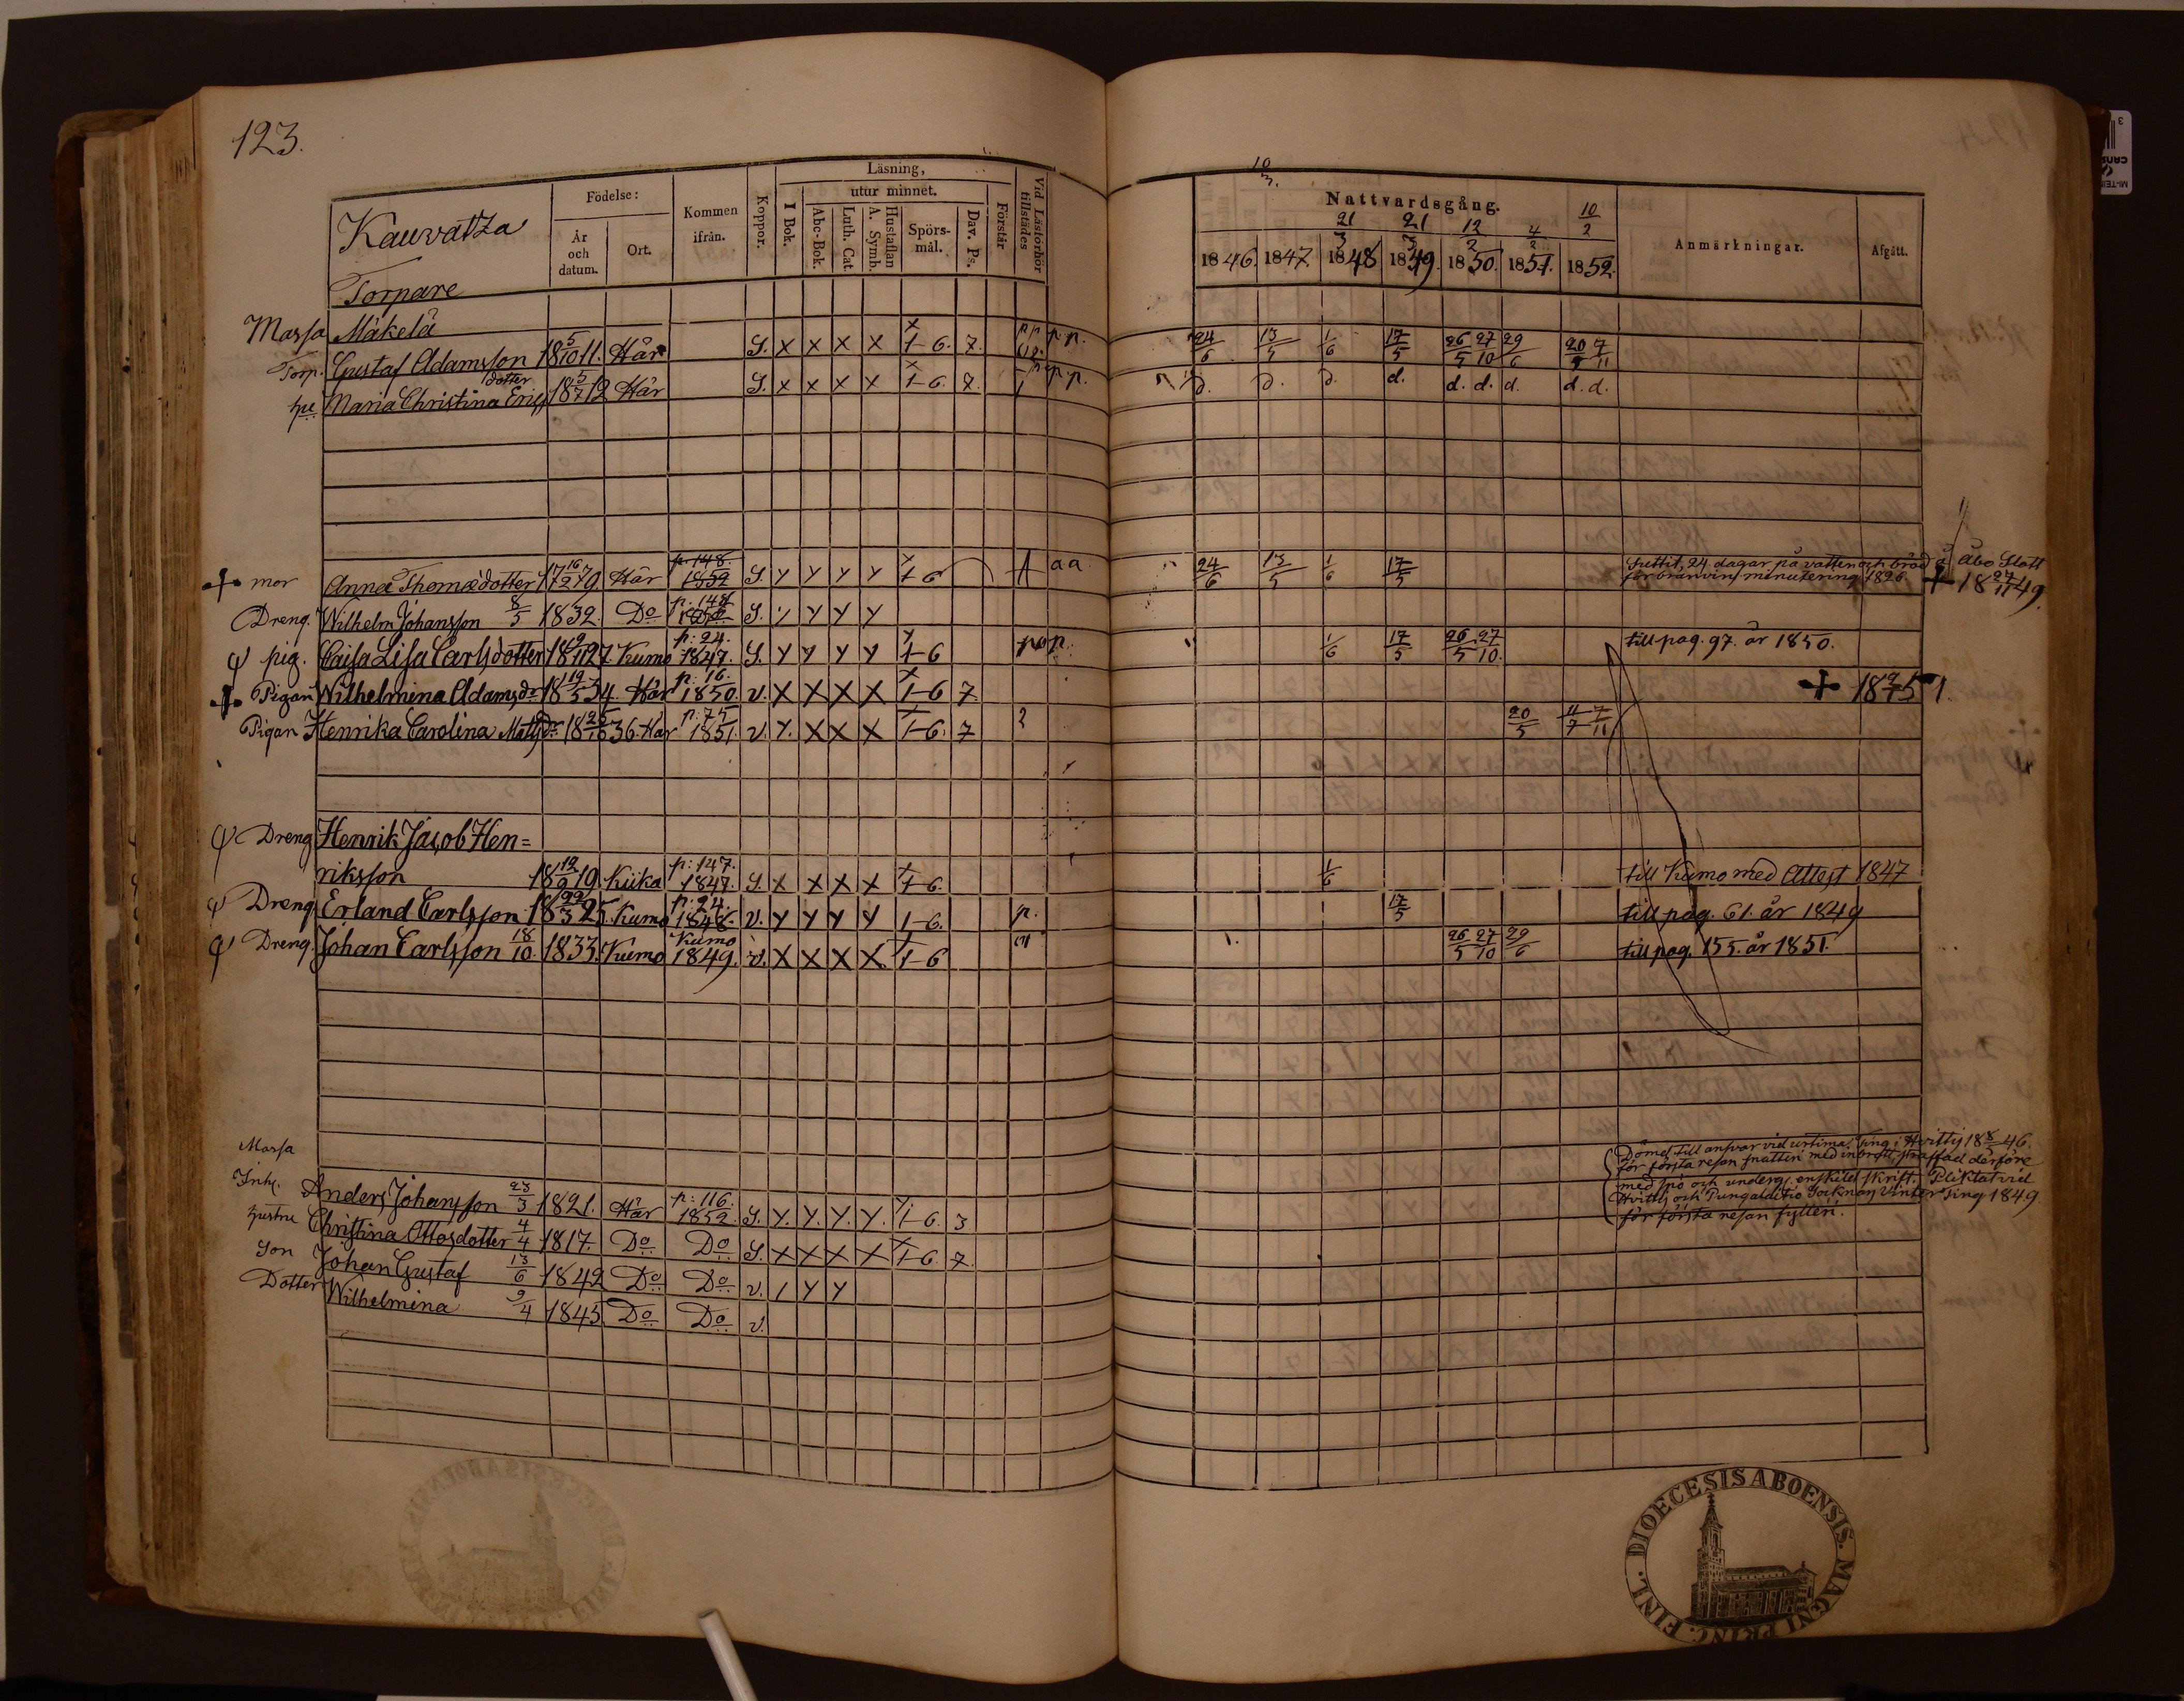 123.
Kauvatza
Födelse:
År och datum.
Ort.
Kommen ifrån.
Koppor.
Läsning,
utur minnet.
I Bok.
Abc-Bok.
Luth. Cat.
Hustaflan A. Symb.
Spörsmål.
Dav. Ps.
Förstår
Vid Läsförhör tillstädes
10/3.
Nattvardsgång.
21/3 21/3 12/2 4/2 10/2
1846. 1847. 1848 1849. 1850. 1851. 1852.
Anmärkningar.
Afgått.
Torpare
Massa Mäkelä
Torp. Gustaf Adamsson 18 5/10 11. Här S. x x x x 1-6. 7. p.p. 24/6 13/5 1/6 17/5 26/5 27/10 29/6 20/5 7/11
dotter
hu Maria Christina Erics 18 5/7 12 Här S. x x x x 1-6. 7. p.p. d. d. d. d. d. d. d. d. d.
+ mor Anna Thomædotter 17 16/12 79. Här p. 148. 1852 S. y y y y 1-6 a a 24/6 13/5 1/6 17/5 Suttit, 24 dagar på vatten och bröd å Åbo Slott
för bränvins minutering 1826. + 18 27/11 49.
Dreng. Wilhelm Johansson 8/5 1832. Do p. 148 S. y y y y
pig. Caisa Lisa Carlsdotter 18 9/11 27. Kumo p: 24. 1847. S. y y y y 1-6 p. 1/6 17/5 26/5 27/10. till pag. 97. år 1850.
+ Pigan Wilhelmina Adamsdr 18 19/5 34. Här p: 16. 1850. v. X X X X 1-6 7. + 18 51.
Pigan Henrika Carolina Matsdr 18 36. Här p: 75 1851. v. y. X X X 1-6. 7 20/5 11/7 7/11
Dreng Henrik Jacob Hen=
riksson 18 12/2 19. Kiika p: 147. 1847. S. X X X X 1-6. 1/6 till Kumo med Attest 1847
Dreng Erland Carlsson 18 22/3 25. Kumo p: 24. 1848. v. y y y y 1-6. p. 17/5 till pag. 61. år 1849
Dreng. Johan Carlsson 18/10. 1833. Kumo Kumo 1849. v. X X X X 1-6 26/5 27/10 29/6 till pag. 155. år 1851.
Massa
Dömd till ansvar vid urtima Ting i Hvittis 18 46.
för första resan snatteri med inbrott, straffad derföre
med spö och underg. enskild skrift. Pliktat vid
Hvittis och Pungalaitio Socknars Vinter Ting 1849.
för första resan fylleri.
Inh. Anders Johansson 23/3 1821. Här p: 116. 1852 S. y. y. y. y. 1-6. 3
hustru Christina Ottosdotter 4/4 1817. Do Do S. X X X X 1-6. 7.
Son Johan Gustaf 13/6 1842 Do Do v. / y y
Dotter Wilhelmina 9/4 1845 Do Do v.
DIOECESIS ABOENSIS. MAGNI PRINC. FINL.